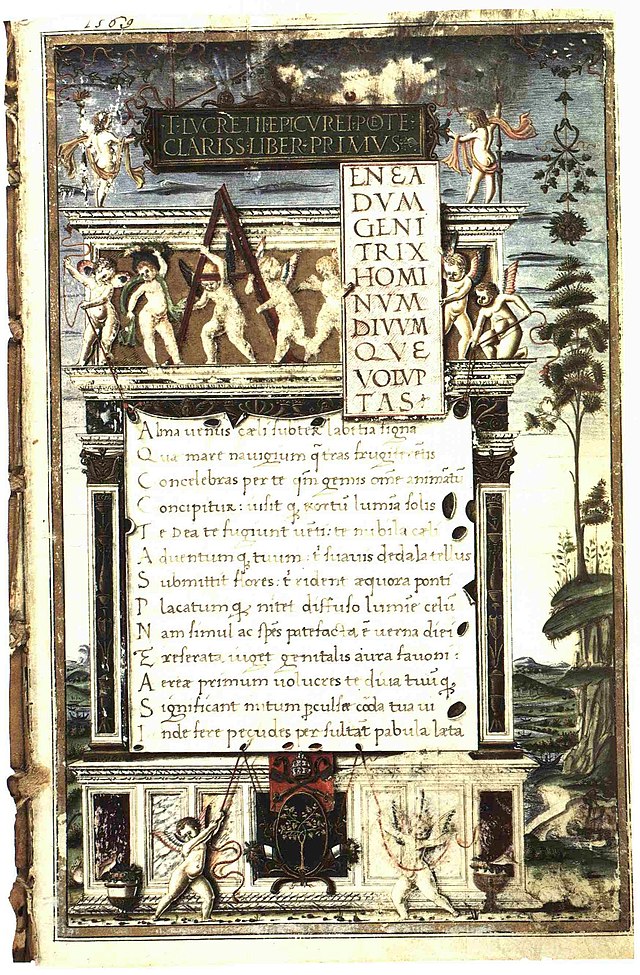 1569
·T·LVCRETII·EPICVREI·POETE·
CLARISS·LIBER·PRIMVS
A
ENEA
DVM
GENI
TRIX
HOMI
NVM
DIVVM
QVE
VOLVP
TAS
Alma uenus cæli subter labẽtia signa
Quæ mare nauigium q̃ tras frugiferẽtis
Concelebras per te qm̃ genus õne animãtũ
Concipitur: uisit q̨ exortũ lumĩa solis
Te Dea te fugiunt uẽti: te nubila cæli
Aduentum q̨ tuum: t̃ suauis dedala tellus
Submittit flores: t̃ rident æquora ponti
Placatum q̨ nitet diffuso lumĩe cælũ
Nam simul ac spẽs patefacta ẽ uerna diei
Et reserata uiget genitalis aura fauoni:
Aereæ primum uolucres te diua tuũ q̨
Significant initum p̱culsæ corda tua ui
Inde fere pecudes persultãt pabula læta